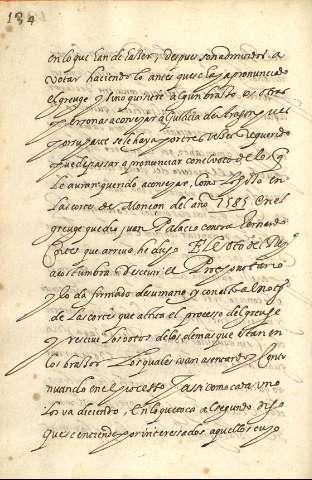 184
en lo que han de saber, despues son admitidos a
votar haciendo lo antes que se haya pronunciado
el greuge y si no quisiere algun brasso o otras
personas aconsejar a Justicia de Aragon
y por su parte se le haya por tres veces requerido
puede passar a pronunciar con el voto de los q
le auran querido aconsejar, como se hizo en
las cortes de Monçon del año 1585 en el
greuge que dio Juan Palacio contra Bernardo
que arriuo he dicho El voto del
acostumbra descriuir el Prothonotario
y lo da firmado de su mano y con al not
de las cortes que actua el processo del greuge
y resciue los votos de los demas que votan en
los brassos los quales van asentando y conti
nuando en el processo assi como cada uno
los va diciendo, En lo que toca al segundo
que se entiende por interessados aquellos cuyo